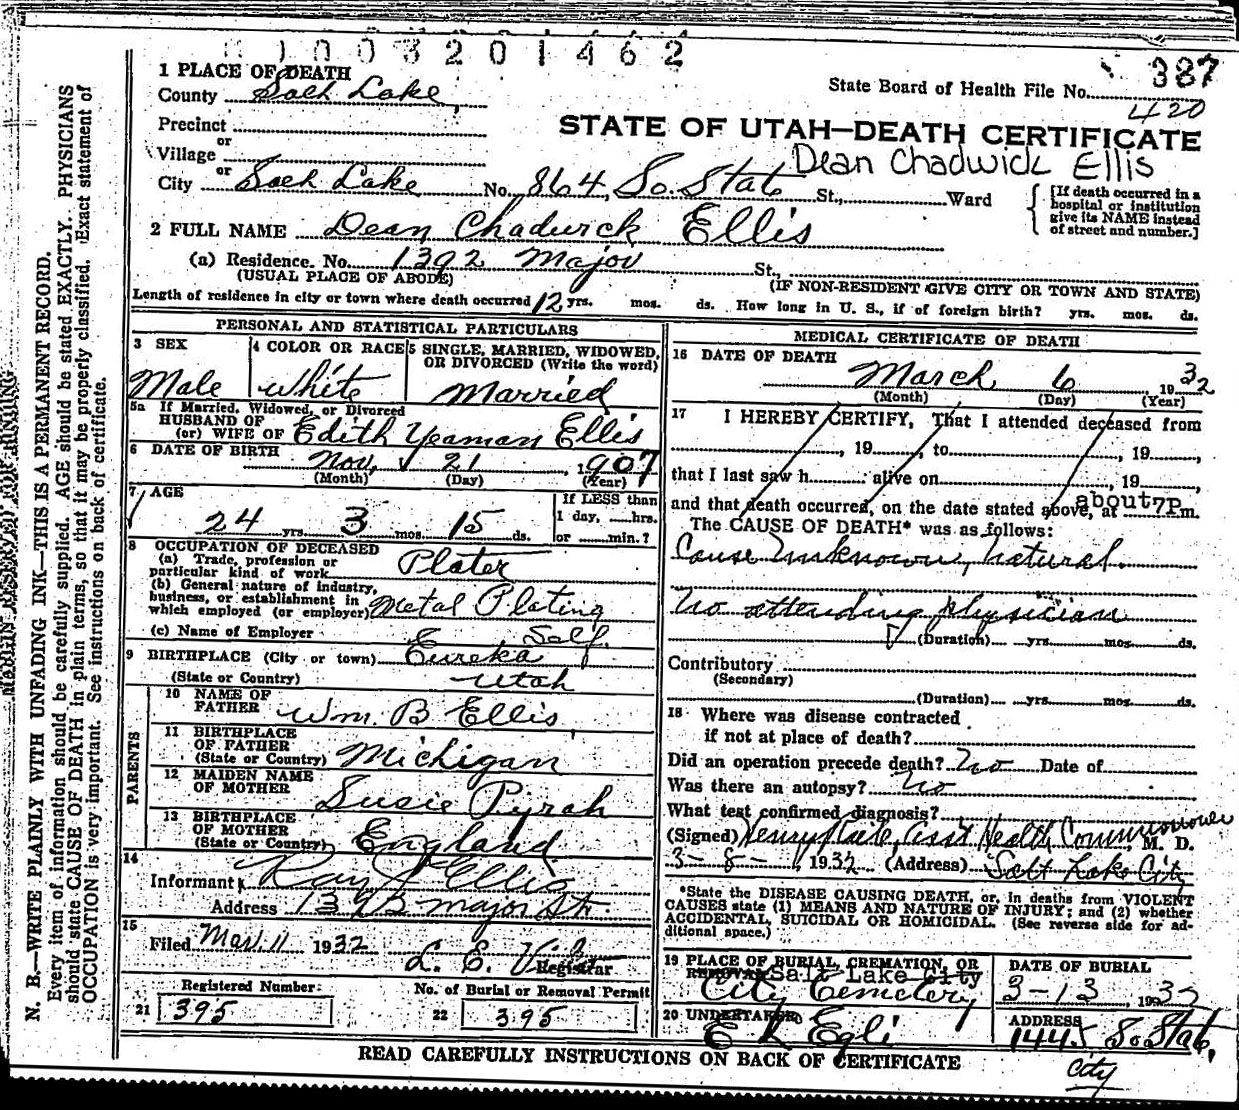 0 1 0 0 3 2 0 1 4 6 2
387
State Board of Health File No.
420
STATE OF UTAH—DEATH CERTIFICATE
Dean Chadwick Ellis
1 PLACE OF DEATH
County Salt Lake
Precinct
or
Village
or
City Salt Lake No. 864 So. State St., Ward
[If death occurred in a hospital or institution give its NAME instead of street and number.]
2 FULL NAME Dean Chadwick Ellis
(a) Residence. No. 1392 Major St.,
(USUAL PLACE OF ABODE) (IF NON-RESIDENT GIVE CITY OR TOWN AND STATE)
Length of residence in city or town where death occurred 12 yrs. mos. ds. How long in U. S., if of foreign birth? yrs. mos. ds.
PERSONAL AND STATISTICAL PARTICULARS
3 SEX
Male
4 COLOR OR RACE
White
5 SINGLE, MARRIED, WIDOWED, OR DIVORCED (Write the word)
Married
5a If Married, Widowed, or Divorced
HUSBAND OF
(or) WIFE OF Edith Yeaman Ellis
6 DATE OF BIRTH Nov. 21, 1907
(Month) (Day) (Year)
7 AGE
24 yrs. 3 mos. 15 ds.
If LESS than
1 day, hrs.
or min.?
8 OCCUPATION OF DECEASED
(a) Trade, profession or
particular kind of work Plater
(b) General nature of industry,
business, or establishment in
which employed (or employer) Metal Plating
(c) Name of Employer Self
9 BIRTHPLACE (City or town) Eureka
(State or Country) Utah
PARENTS
10 NAME OF
FATHER Wm. B Ellis
11 BIRTHPLACE
OF FATHER
(State or Country) Michigan
12 MAIDEN NAME
OF MOTHER Susie Pyrah
13 BIRTHPLACE
OF MOTHER
(State or Country) England
14
Informant Ray J Ellis
Address 1392 Major St.
15
Filed Mar 11 1932
Registrar
Registered Number:
21 395
No. of Burial or Removal Permit
22 395
MEDICAL CERTIFICATE OF DEATH
16 DATE OF DEATH
March 6 1932
(Month) (Day) (Year)
17 I HEREBY CERTIFY, That I attended deceased from
, 19 , to , 19 ,
that I last saw h alive on , 19 ,
and that death occurred, on the date stated above, at about 7P m.
The CAUSE OF DEATH* was as follows:
Cause Unknown, natural.
No attending physician
(Duration) yrs. mos. ds.
Contributory
(Secondary)
(Duration) yrs. mos. ds.
18 Where was disease contracted
if not at place of death?
Did an operation precede death? No Date of
Was there an autopsy? No
What test confirmed diagnosis?
(Signed) Asst Health Commissioner M. D.
3-8-, 1932 (Address) Salt Lake City
*State the DISEASE CAUSING DEATH, or, in deaths from VIOLENT
CAUSES state (1) MEANS AND NATURE OF INJURY; and (2) whether
ACCIDENTAL, SUICIDAL OR HOMICIDAL. (See reverse side for ad-
ditional space.)
19 PLACE OF BURIAL, CREMATION, OR
REMOVAL Salt Lake City
City Cemetery
DATE OF BURIAL
3-13, 1932
20 UNDERTAKER
E L Egli
ADDRESS
1445 So State,
City
READ CAREFULLY INSTRUCTIONS ON BACK OF CERTIFICATE
N. B.—WRITE PLAINLY WITH UNFADING INK—THIS IS A PERMANENT RECORD.
Every item of information should be carefully supplied. AGE should be stated EXACTLY. PHYSICIANS
should state CAUSE OF DEATH in plain terms, so that it may be properly classified. Exact statement of
OCCUPATION is very important. See instructions on back of certificate.
MARGIN RESERVED FOR BINDING